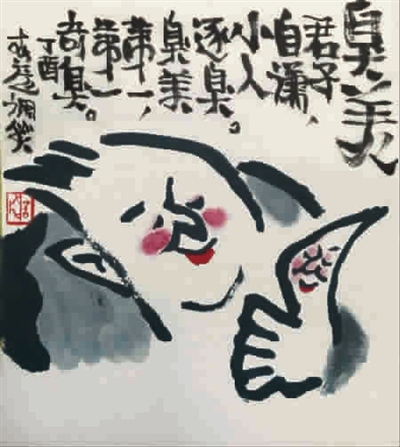 臭美
君子
自潇，
小人
逐臭。
臭美
第一，
第一
奇臭。
丁酉
调笑